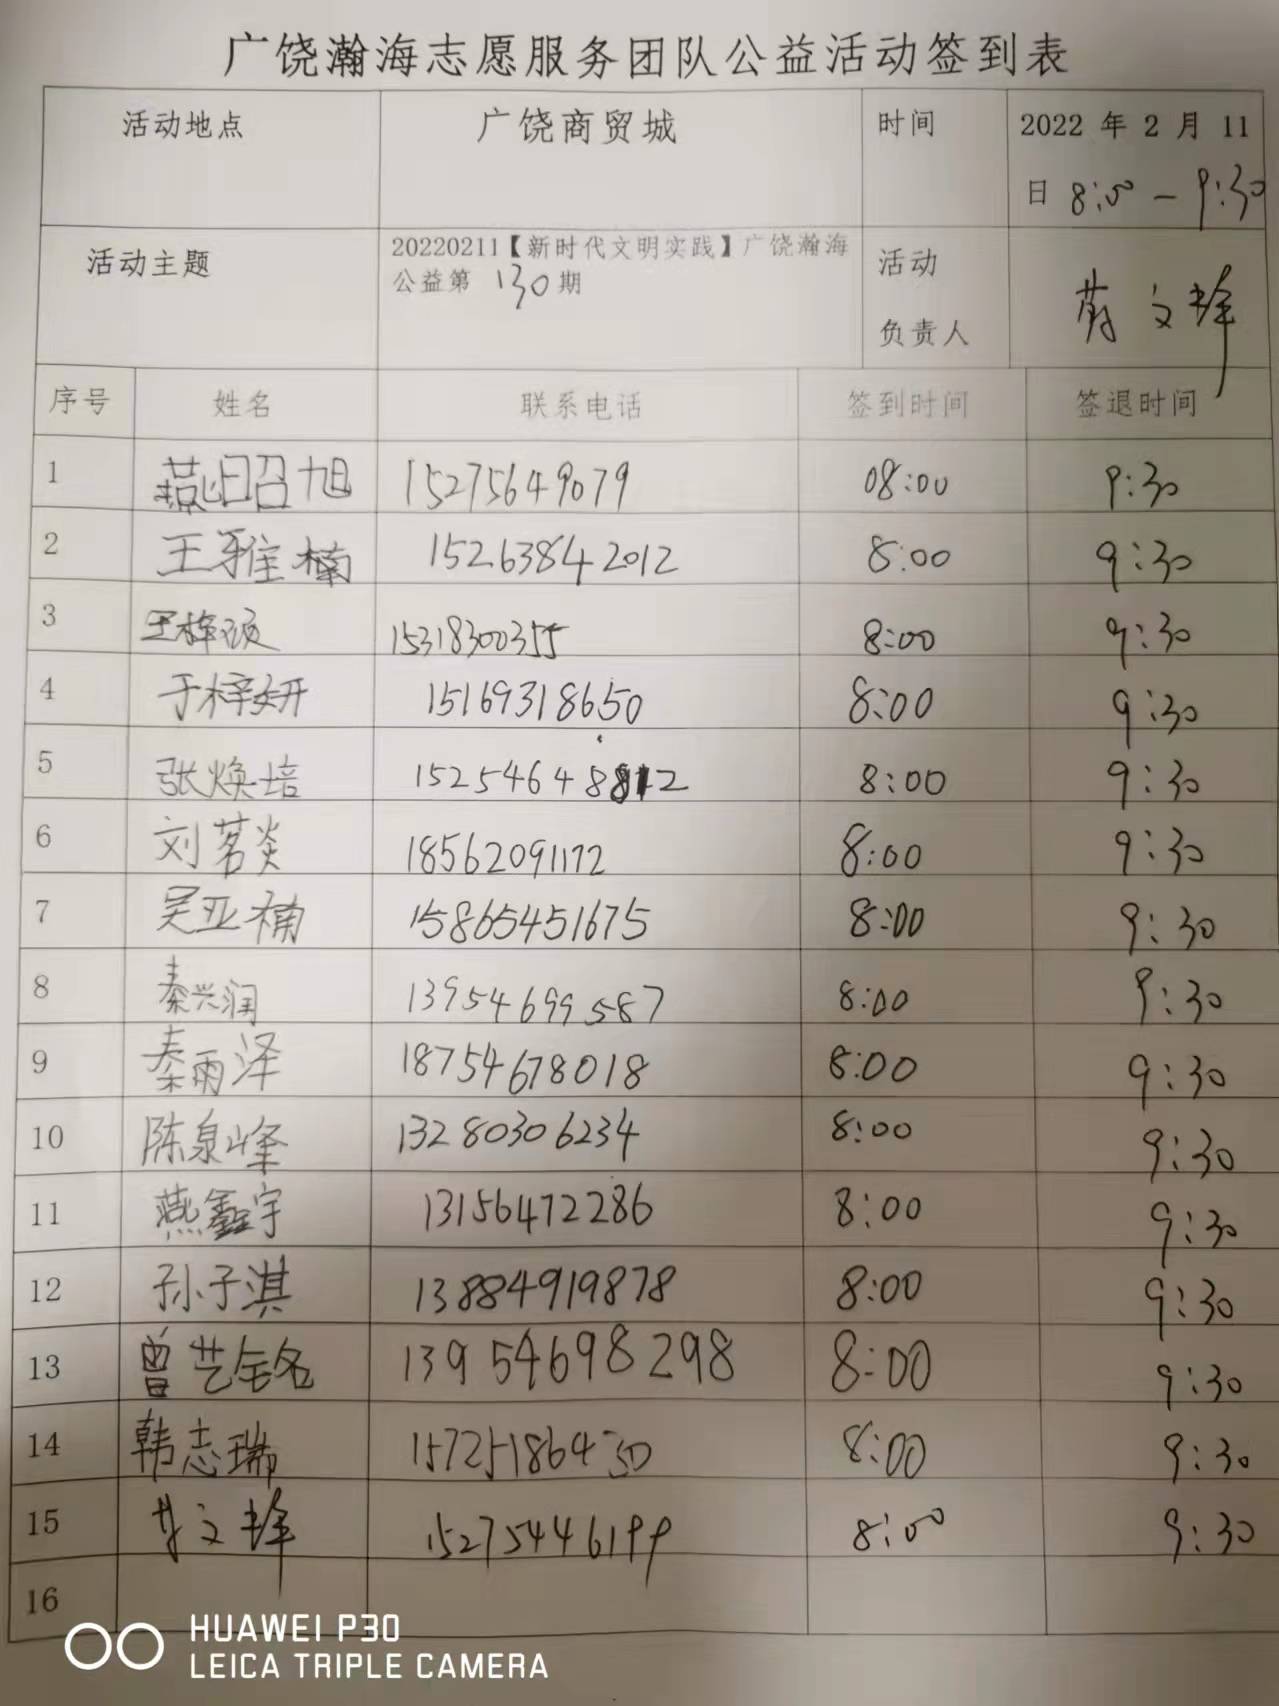 广饶瀚海志愿服务团队公益活动签到表
活动地点 广饶商贸城 时间 2022 年 2 月 11
日 8:00 — 9:30
活动主题 20220211【新时代文明实践】广饶瀚海 活动
公益第 130 期 负责人 文峰
序号 姓名 联系电话 签到时间 签退时间
1 燕昭旭 15275649079 08:00 9:30
2 王雅楠 15263842012 8:00 9:30
3 王梓硕 15318300355 8:00 9:30
4 于梓妍 15169318650 8:00 9:30
5 张焕培 8:00 9:30
6 刘茗炎 18562091172 8:00 9:30
7 吴亚楠 15865451675 8:00 9:30
8 秦兴润 13954699587 8:00 9:30
9 秦雨泽 18754678018 8:00 9:30
10 陈泉峰 13280306234 8:00 9:30
11 燕鑫宇 13156472286 8:00 9:30
12 孙子淇 13884919878 8:00 9:30
13 曾艺铭 13954698298 8:00 9:30
14 韩志瑞 15725186430 8:00 9:30
15 文峰 15275446199 8:00 9:30
16
HUAWEI P30
LEICA TRIPLE CAMERA